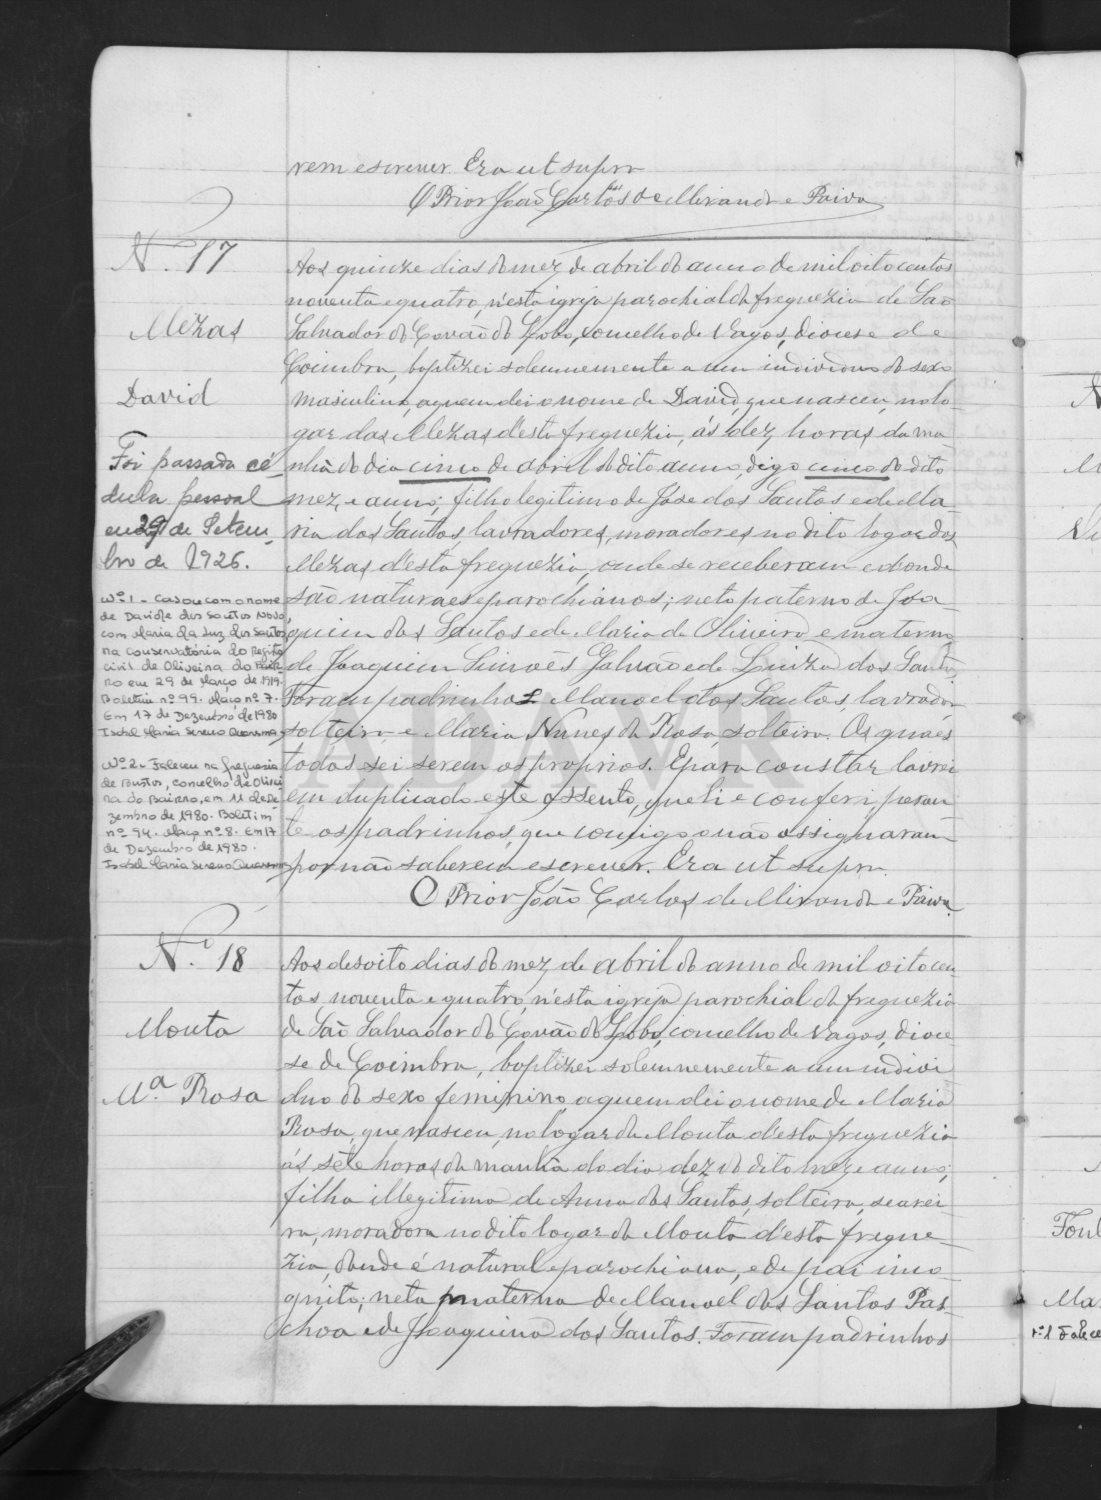 rem escrever. Era ut supra
O Prior João Carlos de Miranda e Paiva
N.º 17
Mezas
David
Foi passada cé-
dula pessoal
em 29 de Setem-
bro de 1926.
Nº 1 - Casou com o nome
de Davide dos Santos Novo,
com Maria da Luz dos Santos,
na Conservatória do Registo
civil de Oliveira do Bair-
ro em 29 de Março de 1919.
Boletim nº 99. Maço nº 7.
Em 17 de Dezembro de 1980
Isabel Maria Sereno Quaresma
Nº 2 - Faleceu na freguesia
de Bustos, concelho de Olivei
ra do Bairro, em 11 de De-
zembro de 1980. Boletim
nº 94. Maço nº 8. Em 17
de Dezembro de 1980.
Isabel Maria Sereno Quaresma
Aos quinze dias do mez de abril do anno de mil oito centos
noventa e quatro, n'esta igreja parochial da freguezia de São
Salvador do Covão do Lobo, concelho de Vagos, diocese de
Coimbra, baptizei solemnemente a um individuo do sexo
masculino, a quem dei o nome de David, que nasceu, no lo-
gar das Mezas d'esta freguezia, ás dez horas da ma
nhã do dia cinco de abril do dito anno, digo cinco do dito
mez, e anno; filho legitimo de José dos Santos e de Ma-
ria dos Santos, lavradores, moradores no dito logar das
Mezas d'esta freguezia, onde se receberam e donde
são naturaes e parochianos; neto paterno de Joa-
quim dos Santos e de Maria de Oliveira e materno
de Joaquim Simões Galvão e de Luiza dos Santos
Foram padrinhos Manoel dos Santos, lavrador
solteiro e Maria Nunes da Rosa, solteira. Os quaes
todos sei serem os proprios. E para constar lavrei
em duplicado este assento, que li e conferi, peran-
te os padrinhos, que comigo o não assignaram
por não saberem escrever. Era ut supra.
O Prior João Carlos de Miranda e Paiva
ADAVR
N.º 18
Mouta
M.ª Rosa
Aos desoito dias do mez de abril do anno de mil oito cen-
tos noventa e quatro, n'esta igreja parochial da freguezia
de São Salvador do Covão do Lobo, concelho de Vagos, dioce-
se de Coimbra, baptizei solemnemente a um indivi
duo do sexo feminino, a quem dei o nome de Maria
Rosa, que nasceu, no logar da Mouta d'esta freguezia
ás sete horas da manhã do dia dez do dito mez e anno;
filha illegitima de Anna dos Santos, solteira, searei-
ra, moradora no dito logar da Mouta d'esta fregue-
zia, d'onde é natural e parochiana, e de pai inco-
gnito; neta materna de Manoel dos Santos Pas-
choa e de Joaquina dos Santos. Foram padrinhos